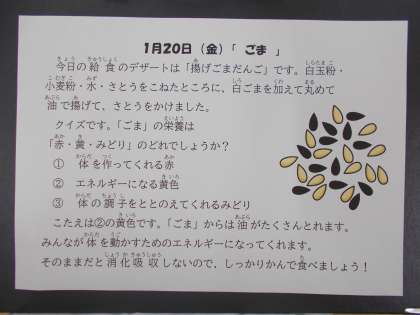 1月20日（金）「 ごま 」
今日の給食のデザートは「揚げごまだんご」です。白玉粉・
小麦粉・水・さとうをこねたところに、白ごまを加えて丸めて
油で揚げて、さとうをかけました。
クイズです。「ごま」の栄養は
「赤・黄・みどり」のどれでしょうか？
① 体を作ってくれる赤
② エネルギーになる黄色
③ 体の調子をととのえてくれるみどり
こたえは②の黄色です。「ごま」からは油がたくさんとれます。
みんなが体を動かすためのエネルギーになってくれます。
そのままだと消化吸収しないので、しっかりかんで食べましょう！